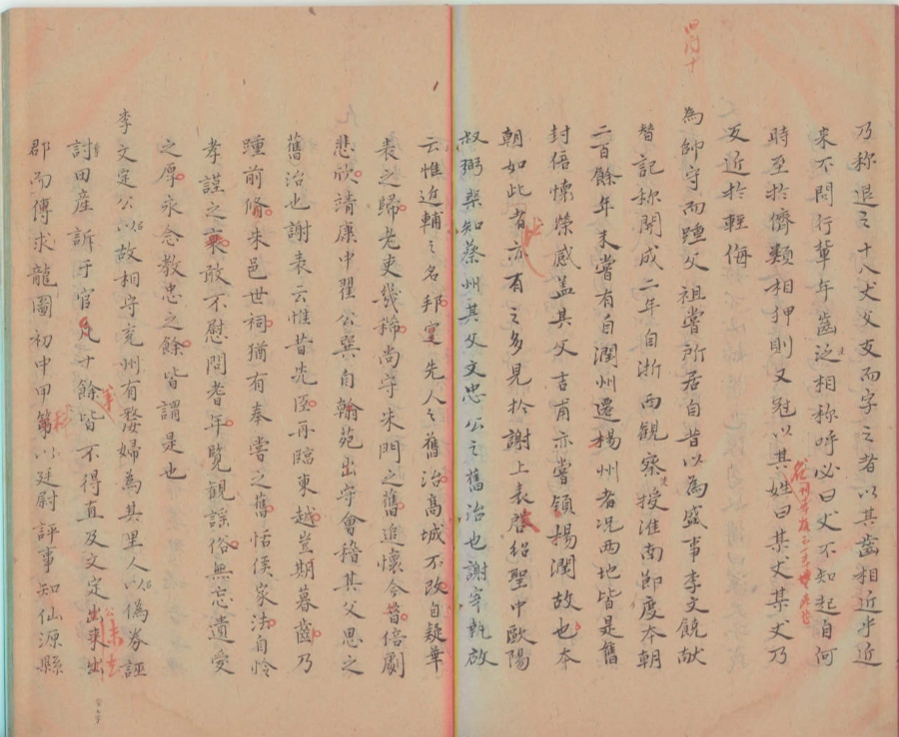 乃称退之十八丈父友而字之者以其齒相近乎近
来不問行輩年齒泛相称呼必曰丈不知起自何
時至於儕類相狎則又冠以其姓曰某丈某丈乃
反近於輕侮
為帥守而踵父祖嘗所居自昔以為盛事李文饒献
替記称開成二年自浙西観察授淮南節度本朝
二百餘年未嘗有自潤州遷楊州者况兩地皆是舊
封倍懷榮感盖其父吉甫亦嘗領楊潤故也本
朝如此者亦有之多見於謝上表啓紹聖中歐陽
叔弼棐知蔡州其父文忠公之舊治也謝宰執啟
云惟近輔之名邦寔先人之舊治髙城不改自疑華
表之歸老吏幾稀尚守朱門之舊追懷今昔倍劇
悲欣靖康中翟公巽自翰苑出守會稽其父思之
舊治也謝表云惟昔先臣再臨東越豈期暮齒乃
踵前脩朱邑世祠猶有奉嘗之舊恬侯家法自怜
孝謹之衰敢不慰問耆年覽観謡俗無忘遺愛
之厚永念教忠之餘皆謂是也
李文定公以故相守兖州有嫠婦為其里人以偽券誣
討田産訴于官凡十餘皆不得直及文定出来出
郡而傳求龍圖初中甲第以廷尉評事知仙源縣